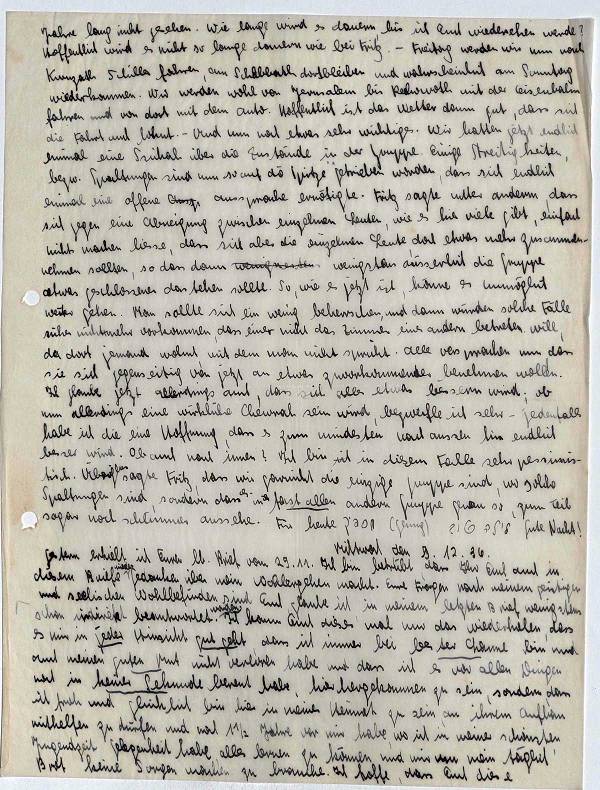 Jahre lang nicht gesehen. Wie lange wird es dauern bis ich Euch wiedersehen werde?
Hoffentlich wird es nicht so lange dauern wie bei Fritz. – Freitag werden wir nun nach
fahren, am Schabbath dortbleiben und wahrscheinlich am Sonntag
wiederkommen. Wir werden wohl von Jerusalem bis Rechowoth mit der Eisenbahn
fahren und von dort mit dem Auto. Hoffentlich ist das Wetter dann gut, dass sich
die Fahrt auch lohnt. – Und nun noch etwas sehr wichtiges. Wir hatten jetzt endlich
einmal eine Szichah über die Zustände in der Gruppe. Einige Streitigkeiten,
bezw. Spaltungen sind nun so auf die Spitze getrieben worden, dass sich endlich
einmal eine offene Aussprache ermöglichte. Fritz sagte unter anderem, dass
sich gegen eine Abneigung zwischen einzelnen Leuten, wie es hier viele gibt, einfach
nicht machen liesse, dass sich aber die einzelnen Leute doch etwas mehr zusammen-
nehmen sollten, so dass dann wenigstens äusserlich die Gruppe
etwas geschlossener dastehen sollte. So, wie es jetzt ist, könne es unmöglich
weiter gehen. Man sollte sich ein wenig beherrschen, und dann würden solche Fälle
sicher nichtmehr vorkommen, dass einer nicht das Zimmer eines andern betreten will,
da dort jemand wohnt mit dem man nicht spricht. Alle versprachen nun dass
sie sich gegenseitig von jetzt an etwas zuvorkommender benehmen wollen.
Ich glaube jetzt allerdings auch, dass sich alles etwas bessern wird; ob
nun allerdings eine wirkliche Chewrah sein wird, bezweifle ich sehr – jedenfalls
habe ich die eine Hoffnung, dass es zum mindesten nach aussen hin endlich
besser wird. Ob auch nach innen? Ich bin ich in diesem Falle sehr pessimis-
tisch. Übrigens sagte Fritz, dass wir garnicht die einzige Gruppe sind, wo solche
Spaltungen sind, sondern dass es in fast allen andern Gruppe genau so, zum Teil
sogar noch schlimmer aussehe. Für heute (genug) Gute Nacht!
Mittwoch den 9.12.36.
Gestern erhielt ich Euren lb. Brief vom 29.11. Ich bin betrübt dass Ihr Euch auch in
diesem Briefe wieder Gedanken über mein Wohlergehen macht. Eure Fragen nach meinem geistigen
und seelischen Wohlbefinden sind Euch glaube ich in meinem letzten Brief wenigstens
schon indirekt beantwortet worden. Ich kann Euch dieses mal nur das wiederholen dass
es mir in jeder Hinsicht gut geht dass ich immer bei bester Laune bin und
auch meinen guten Mut nicht verloren habe und dass ich es vor allen Dingen
noch in keiner Sekunde bereut habe, hierhergekommen zu sein, sondern dass
ich froh und glücklich bin hier in meiner Heimat zu sein an ihrem Aufbau
mithelfen zu dürfen und noch 1 1/2 Jahre vor mir habe, wo ich in meiner schönsten
Jugendzeit gelegenheit habe alles lernen zu können und mir um mein täglich
Brot keine Sorgen machen zu brauche. Ich hoffe, dass Euch diese